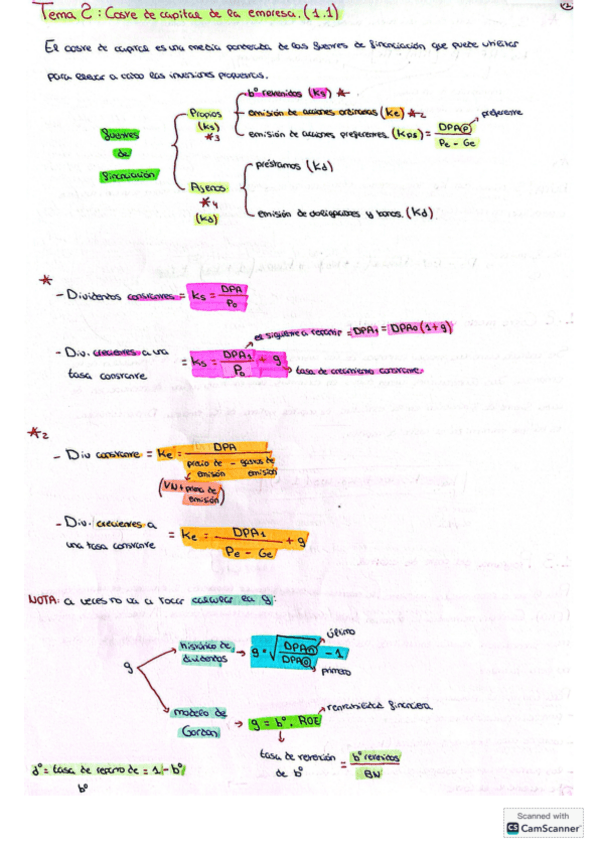 Tema 2: Coste de capital de la empresa. (1.1)
El coste de capital es una media ponderada de las fuentes de financiación que puede utilizar
para llevar a cabo las inversiones propuestas.
Fuentes de financiación
Propios (ks) *3
bº retenidos (ks) *
emisión de acciones ordinarias (ke) *2
emisión de acciones preferentes (kps) = DPA(P) / Pe - Ge
preferente
Ajenos *4 (kd)
préstamos (kd)
emisión de obligaciones y bonos (kd)
*
- Dividentos constantes = ks = DPA / P0
es siguiente a repartir = DPA1 = DPA0 (1+g)
- Div. crecientes a una tasa constante = ks = DPA1 / P0 + g
tasa de crecimiento constante
*2
- Div constante = ke = DPA / precio de emisión - gastos de emisión
(VN + prima de emisión)
- Div. crecientes a una tasa constante = ke = DPA1 / Pe - Ge + g
NOTA: a veces no va a tocar calcular la g:
g
histórico de dividentos → g = √ DPA(n) / DPA(0) - 1
último
primero
modelo de Gordon → g = bº. ROE
rentabilidad financiera
tasa de retención de bº = bº retenidos / BN
dº = tasa de reparto de bº = 1 - bº
Scanned with
CS CamScanner